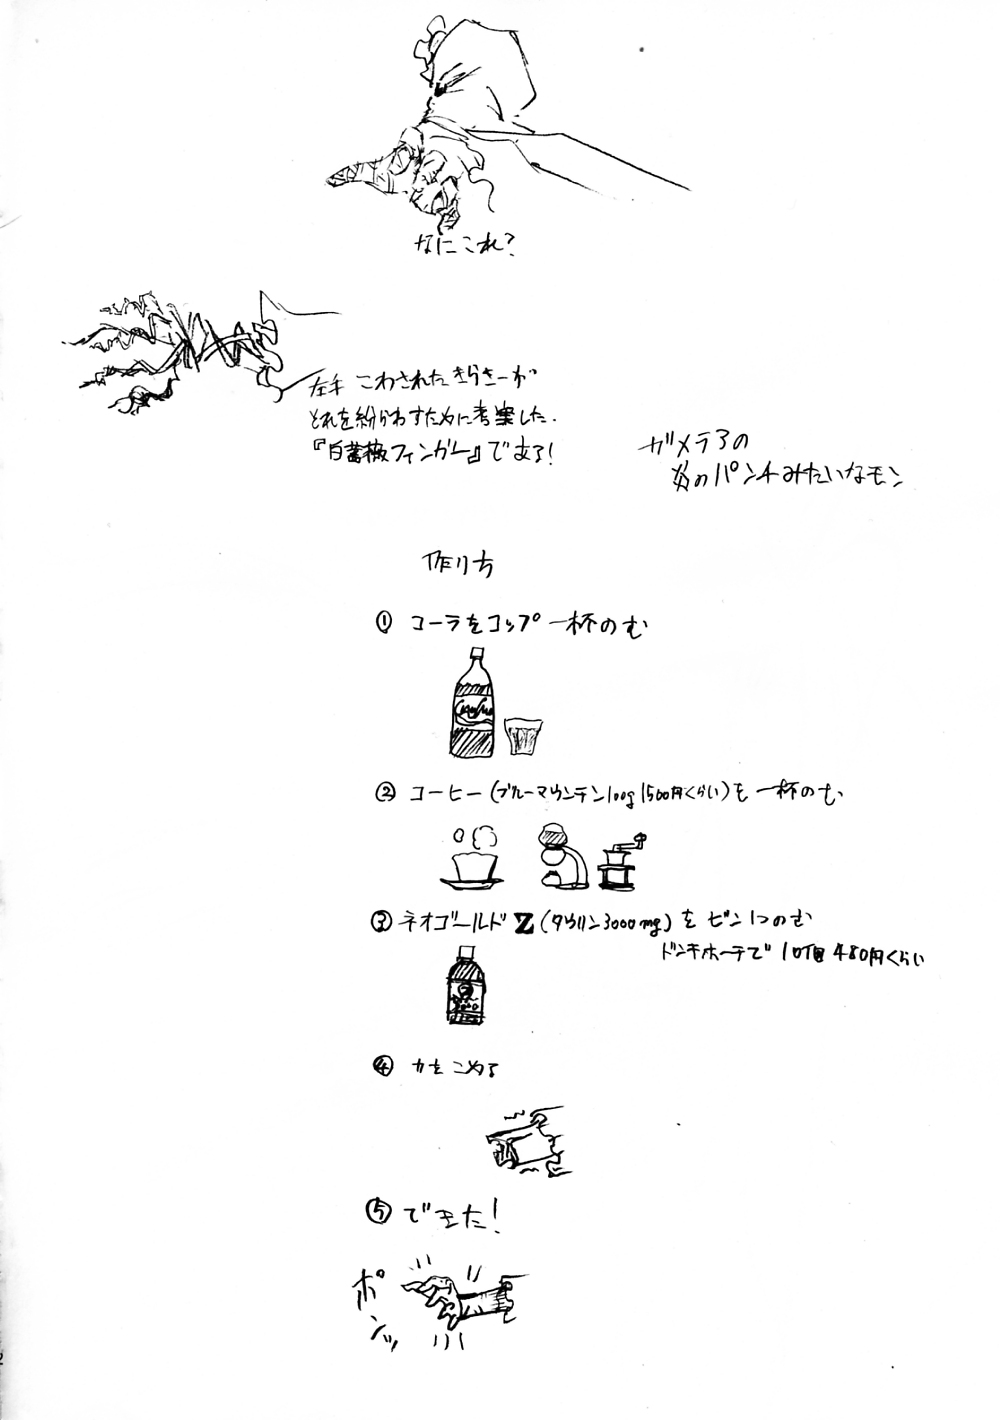 なにこれ?
左手 こわされたきらきーが
それを紛らわすために考案した.
『白薔薇フィンガー』である!
ガメラ3の
炎のパンチみたいなモン
作り方
① コーラをコップ一杯のむ
② コーヒー(ブルーマウンテン100g1500円くらい)も 一杯のむ
③ ネオゴールドZ(タウリン3000mg)を ビン1つのむ
ドンキホーテで 10個480円くらい
④ 力をこめる
⑤ できた!
ポンッ